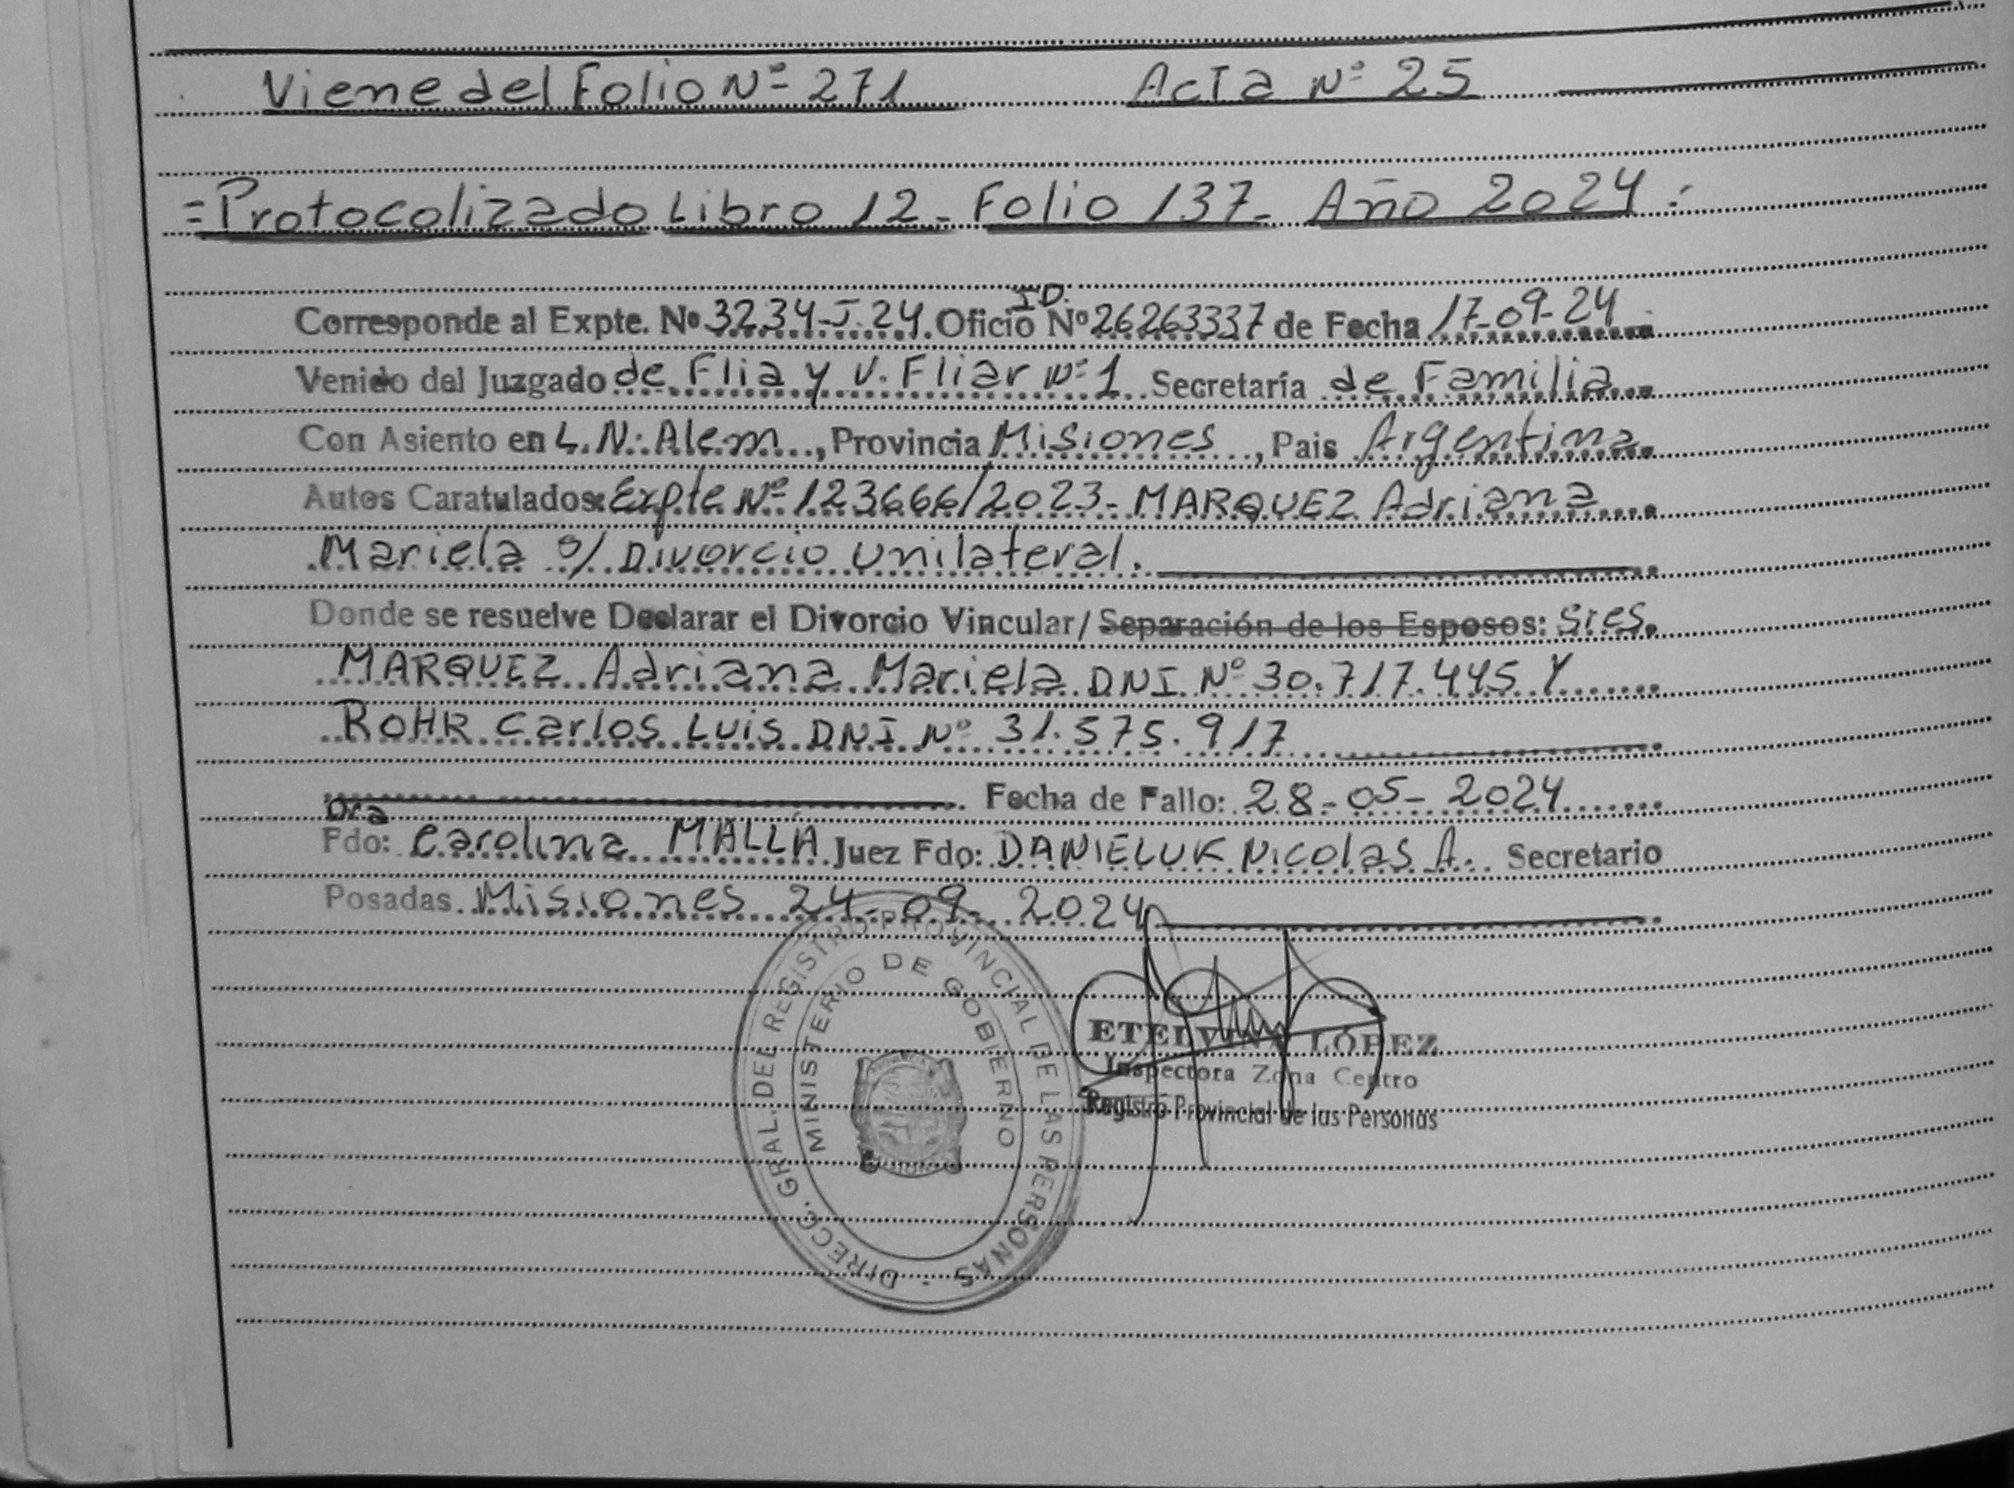 Viene del Folio Nº 271 Acta Nº 25
=Protocolizado Libro 12- Folio 137- Año 2024:
Corresponde al Expte. Nº 3234-J-24. Oficio ID. Nº 26263337 de Fecha 17-09-24
Venido del Juzgado de Flia y V. Fliar Nº 1. Secretaría de Familia
Con Asiento en L.N. Alem, Provincia Misiones, Pais Argentina.
Autos Caratulados: Expte Nº 123666/2023- MARQUEZ Adriana
Mariela s/ Divorcio Unilateral.
Donde se resuelve Declarar el Divorcio Vincular/ Separación de los Esposos: Sres.
MARQUEZ Adriana Mariela DNI Nº 30.717.445 Y
ROHR Carlos Luis DNI Nº 31.575.917
Fecha de Fallo: 28-05-2024
Dra
Fdo: Carolina MALLA Juez Fdo: DANIELUK Nicolas A. Secretario
Posadas. Misiones 24-09-2024
DIRECC. GRAL. DEL REGISTRO PROVINCIAL DE LAS PERSONAS
MINISTERIO DE GOBIERNO
ETELVINA LÓPEZ
Inspectora Zona Centro
Registro Provincial de las Personas